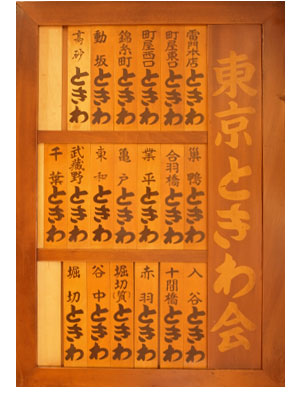 東京ときわ会
雷門本店ときわ
町屋東口ときわ
町屋西口ときわ
錦糸町ときわ
動坂ときわ
高砂ときわ
巣鴨ときわ
合羽橋ときわ
業平ときわ
亀戸ときわ
東和ときわ
武蔵野ときわ
千葉ときわ
入谷ときわ
十間橋ときわ
赤羽ときわ
堀切(賀)ときわ
谷中ときわ
堀切ときわ